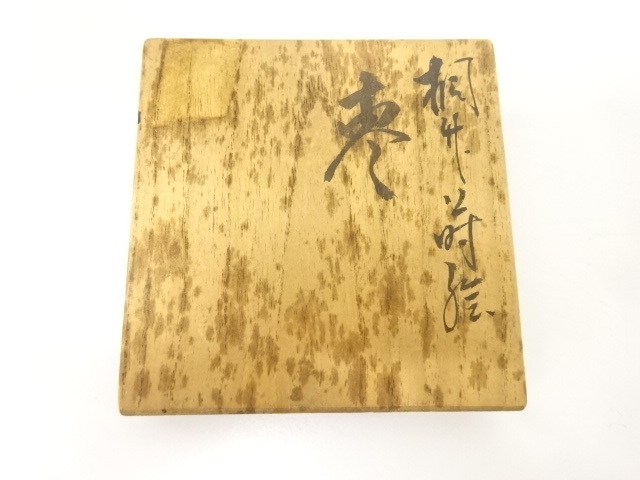 桐竹蒔絵
棗